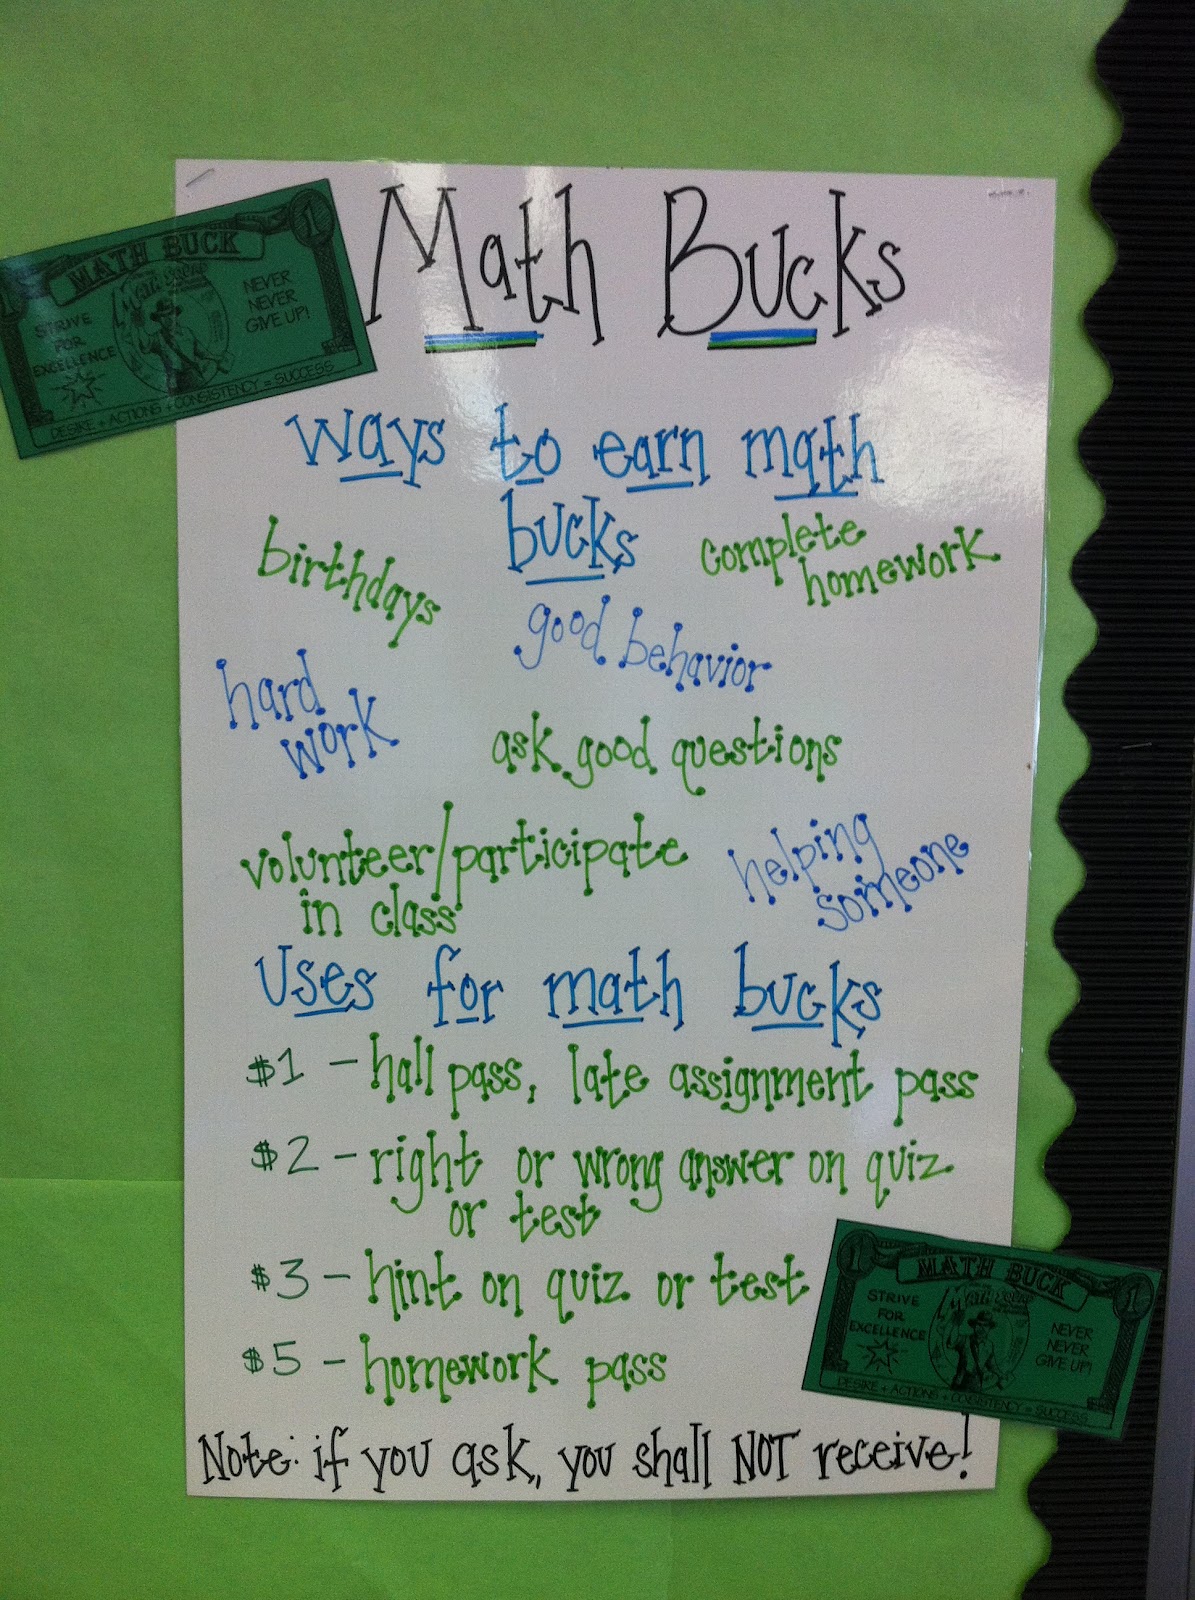 Math Bucks
MATH BUCK
1
1
STRIVE
FOR
EXCELLENCE
NEVER
NEVER
GIVE UP!
DESIRE + ACTIONS + CONSISTENCY = SUCCESS
ways to earn math
bucks
birthdays
complete
homework
good behavior
hard
work
ask good questions
volunteer/participate
in class
helping
someone
Uses for math bucks
$1 - hall pass, late assignment pass
$2 - right or wrong answer on quiz
or test
$3 - hint on quiz or test
$5 - homework pass
MATH BUCK
1
1
STRIVE
FOR
EXCELLENCE
NEVER
NEVER
GIVE UP!
DESIRE + ACTIONS + CONSISTENCY = SUCCESS
Note: if you ask, you shall NOT receive!